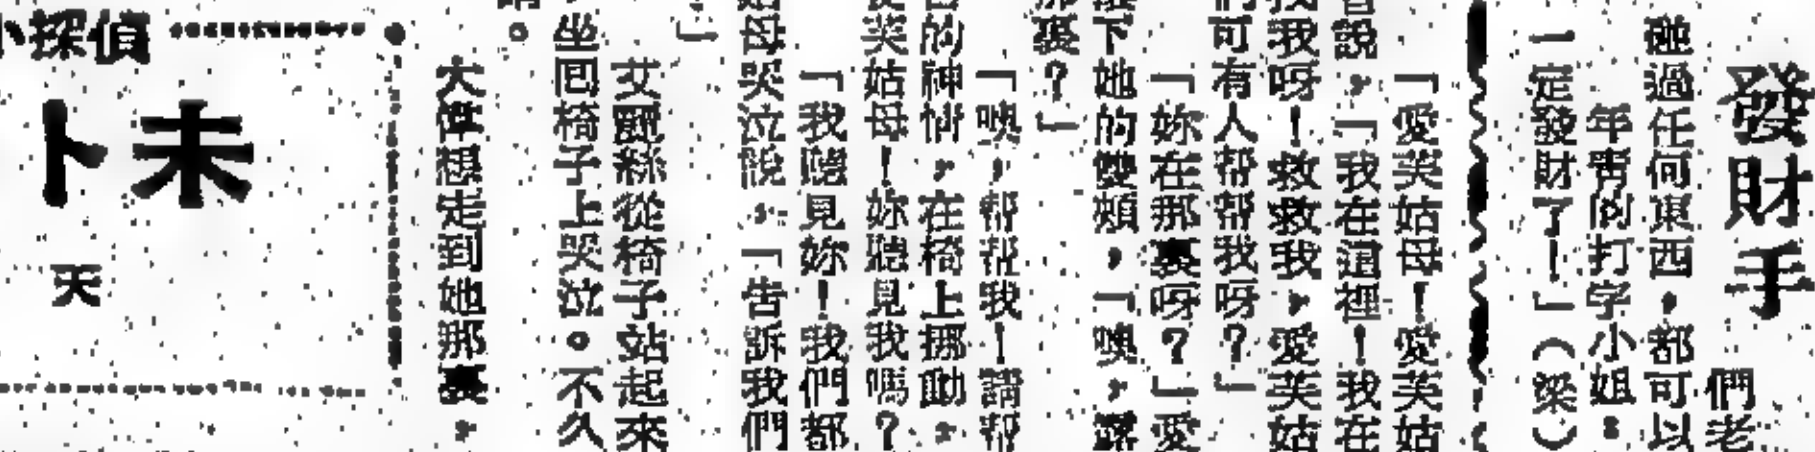 發財手
們老
碰過任何東西，都可以
年青的打字小姐：
一定發財了！」（梁）
「愛芙姑母！愛芙姑
說，「我在這裡！我在
我呀！救救我，愛芙姑
可有人帮帮我呀？」
「妳在那裏呀？」愛
下她的雙頰，「噢，
裏？」
「噢，帮帮我！請帮
的神情，在椅上挪動，
芙姑母！妳聽見我嗎？
「我聽見妳！我們都
母哭泣說，「告訴我們
」
艾麗絲從椅子站起來
坐回椅子上哭泣。不久
。
大偉想走到她那裏，
小探偵
卜未
天